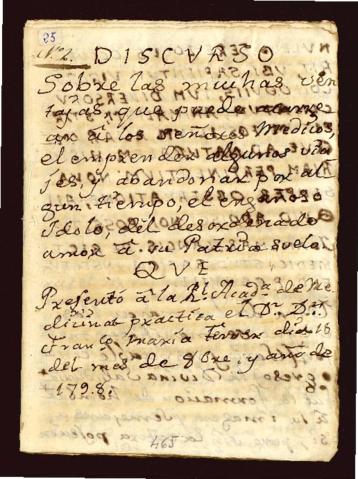 25
Nº 2.
DISCVRSO
Sobre las muchas ven
tajas, que puede acarre
ar â los Mendios Medicos,
el emprender algunos via
jes, y abandonar por al
gun tiempo, el engañoso
idolo, del desordenado
amor â su Patrio suelo
QVE
Presentó â la Rl. Acad.a de Me
dicina practica el Dr. Dn.
Franco. Maria dia 18
del mes de 8bre, y año de
1798.
465